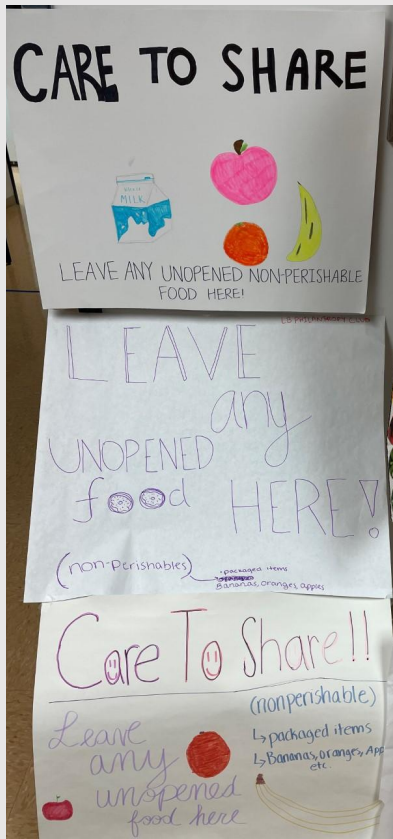 CARE TO SHARE
MILK
LEAVE ANY UNOPENED NON-PERISHABLE
FOOD HERE!
LEAVE
any
UNOPENED
food HERE!
(non-Perishables)
• packaged items
Bananas, oranges, apples
Care To Share!!
(nonperishable)
Leave
any
unopened
food here
↳ packaged items
↳ Bananas, oranges, App
etc.